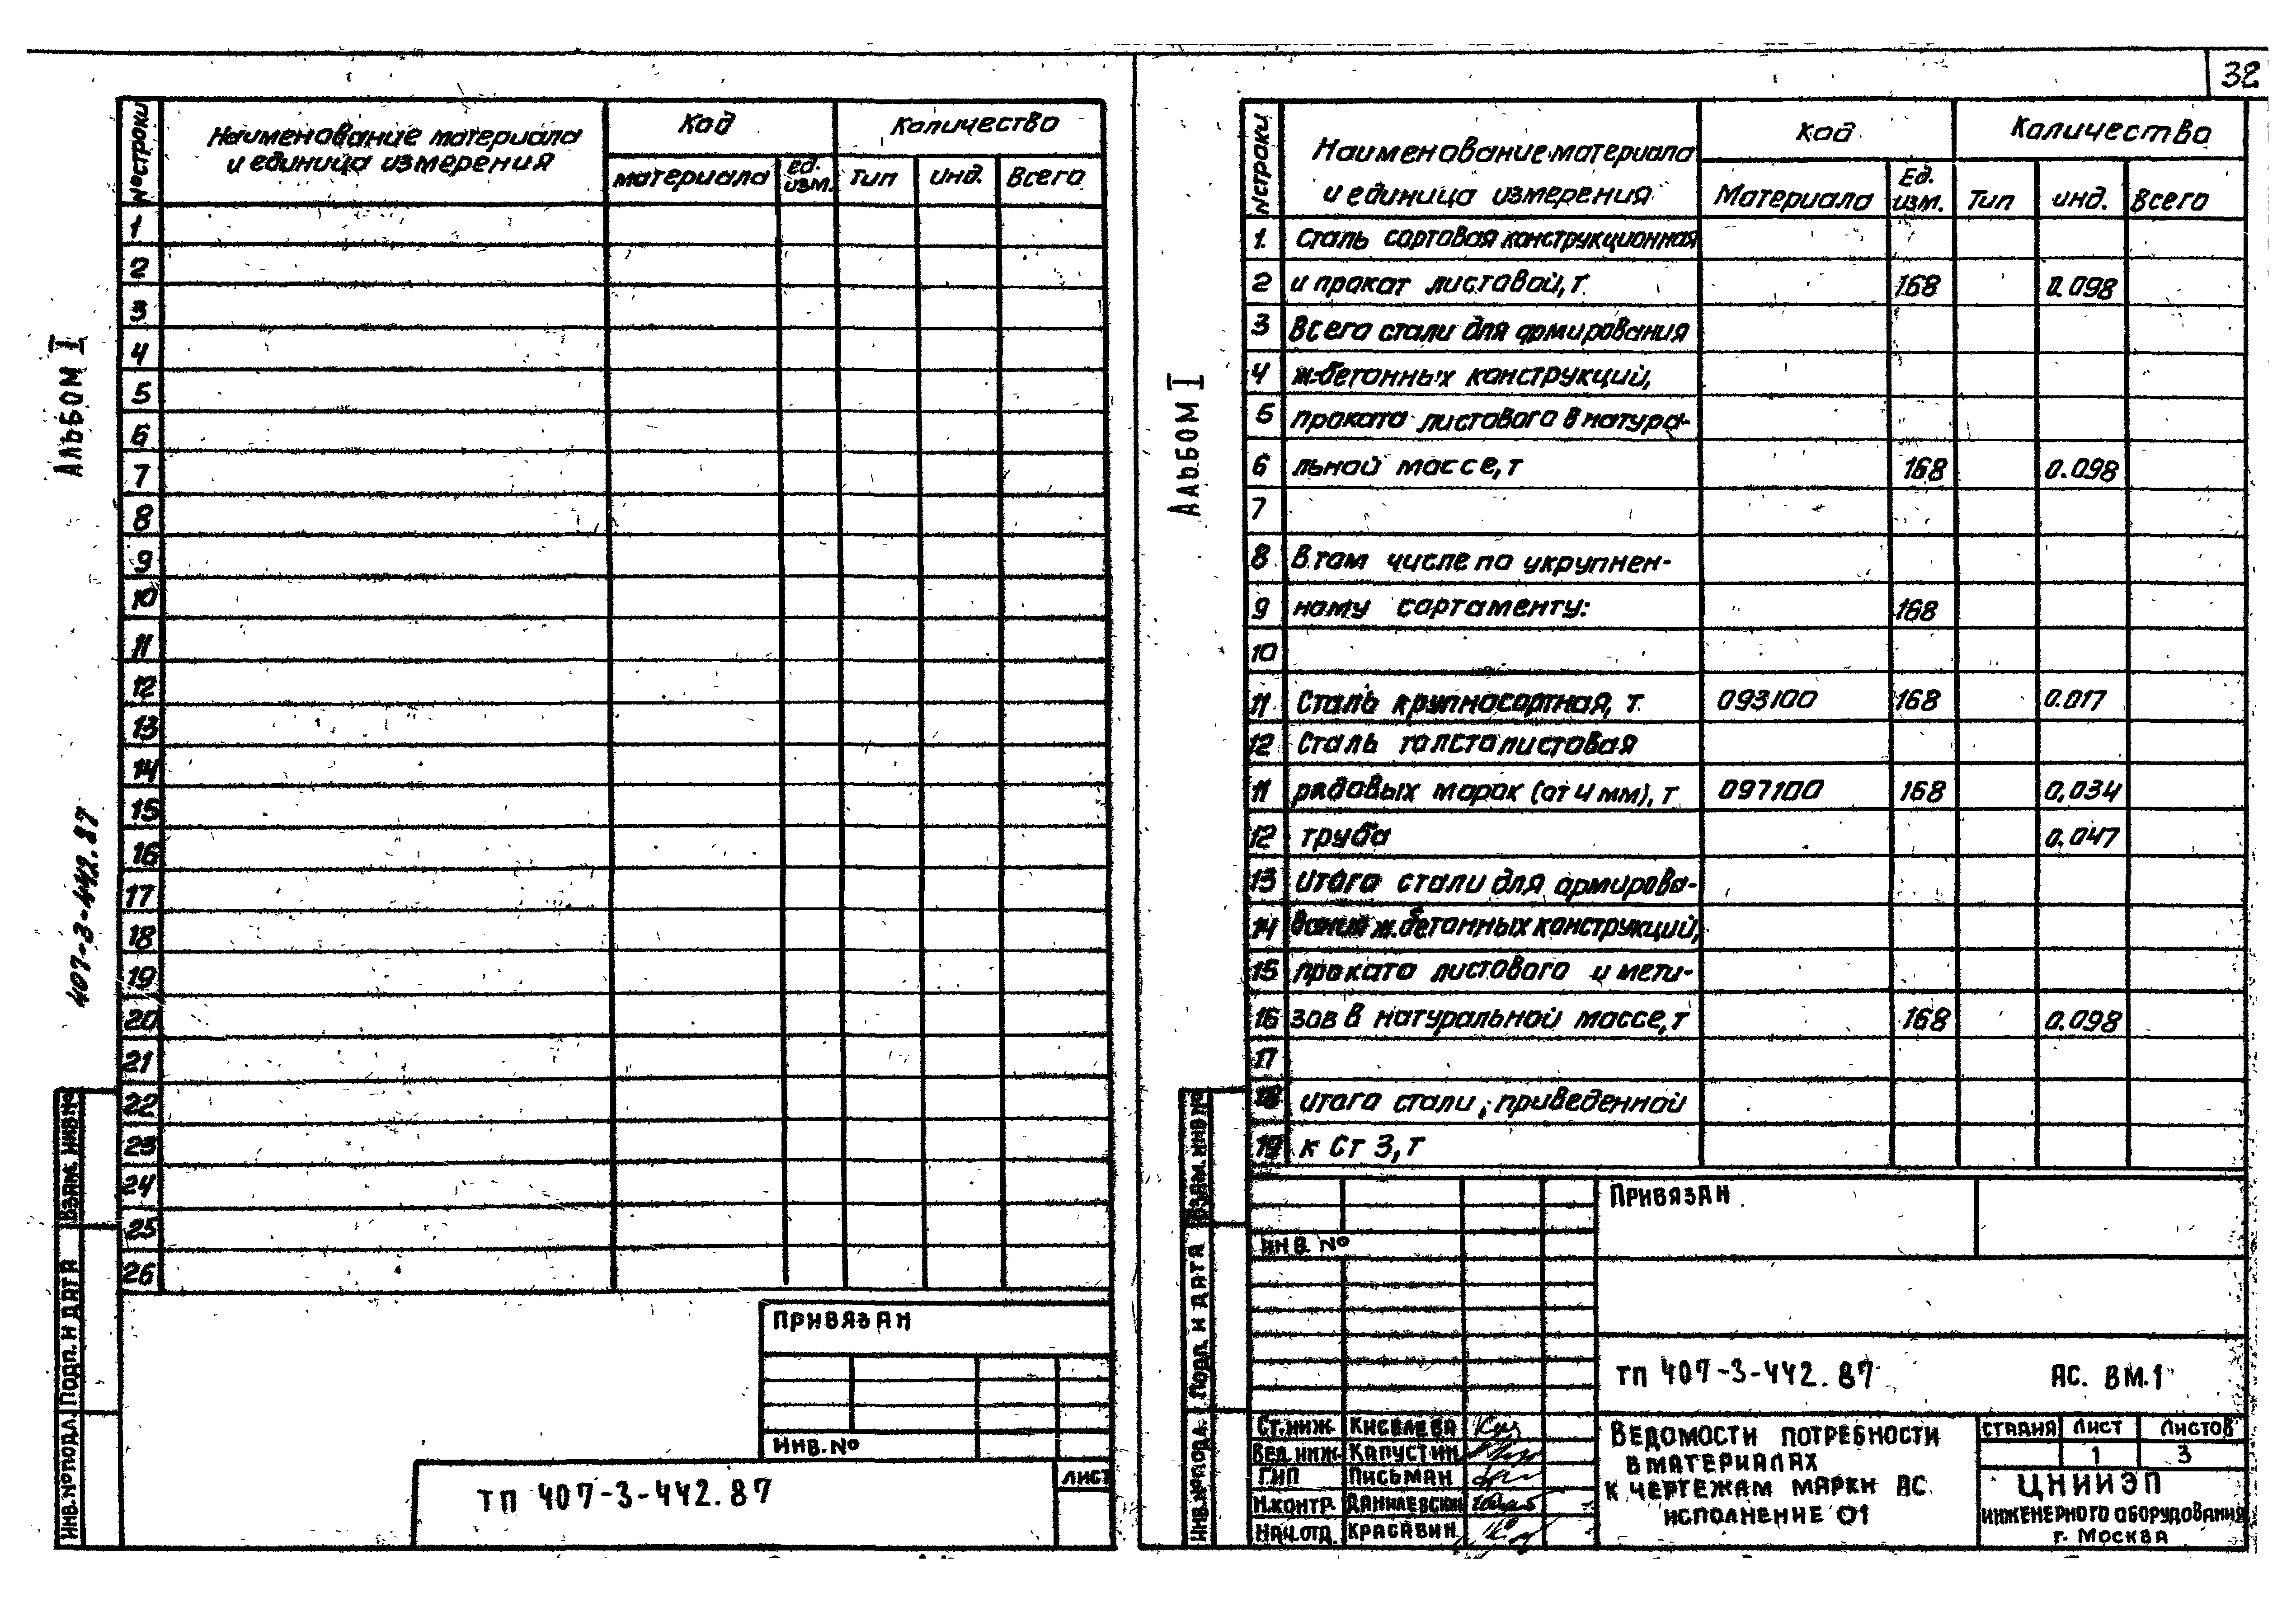 32
№ строки
Наименование материала
и единица измерения
Код
Количество
материала
ед.
изм.
тип
инд.
Всего
1
2
3
4
5
6
7
8
9
10
11
12
13
14
15
16
17
18
19
20
21
22
23
24
25
26
Альбом I
407-3-442.87
Взам. инв №
Подп. и дата
Инв. № подл.
Привязан
Инв. №
ТП 407-3-442.87
Лист
Альбом I
N строки
Наименование материала
и единица измерения
Код
Количество
Материала
Ед.
изм.
Тип
инд.
Всего
1. Сталь сортовая конструкционная
2 и прокат листовой, т 168 0.098
3 Всего стали для армирования
4 ж-бетонных конструкций,
5 проката листового в натура-
6 льной массе, т 168 0.098
7
8 В том числе по укрупнен-
9 ному сортаменту: 168
10
11 Сталь крупносортная, т 093100 168 0.017
12 Сталь толстолистовая
11 рядовых марок (от 4 мм), т 097100 168 0,034
12 труба 0.047
13 итого стали для армирова-
14 вания ж.бетонных конструкций,
15 проката листового и мети-
16 зов в натуральной массе, т 168 0.098
17
18 итого стали, приведенной
19 к Ст 3, т
Взам. инв №
Подп. и дата
Инв. № подл.
Привязан
Инв. №
ТП 407-3-442.87 АС. ВМ.1
Ст. инж. Киселева
Вед. инж. Капустин
ГИП Письман
Н.контр. Данилевский
Нач.отд. Красавин
Ведомости потребности
в материалах
к чертежам марки АС
исполнение 01
Стадия Лист Листов
1 3
ЦНИИЭП
инженерного оборудования
г. Москва